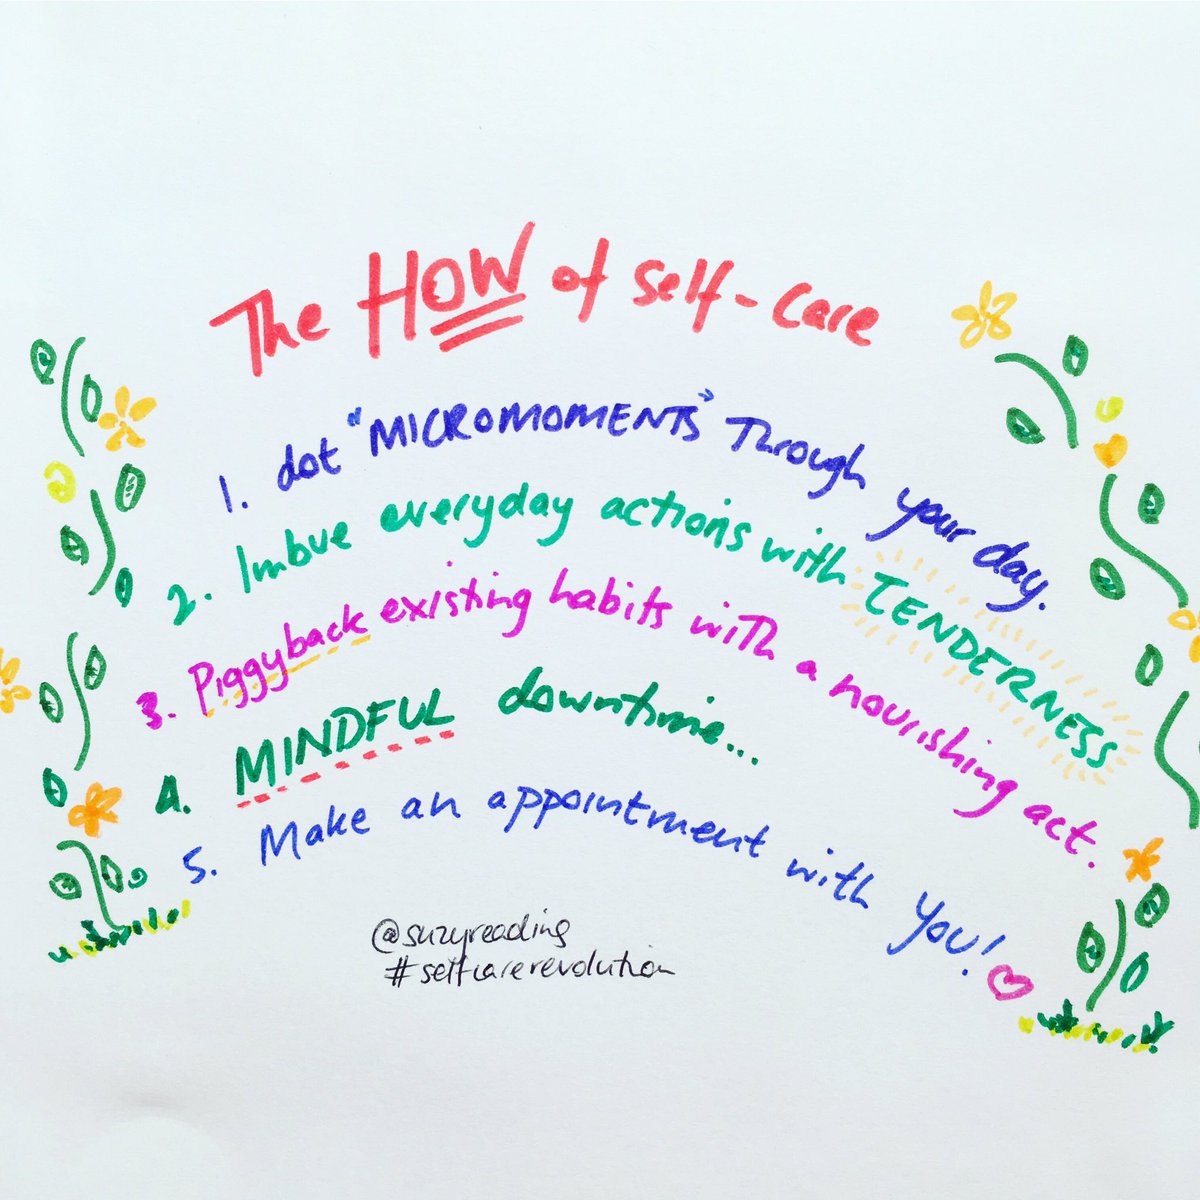 The HOW of self-care
1. dot "MICROMOMENTS" Through your day.
2. Imbue everyday actions with TENDERNESS
3. Piggyback existing habits with a nourishing act.
4. MINDFUL downtime...
5. Make an appointment with YOU!
@suzyreading
#selfcarerevolution